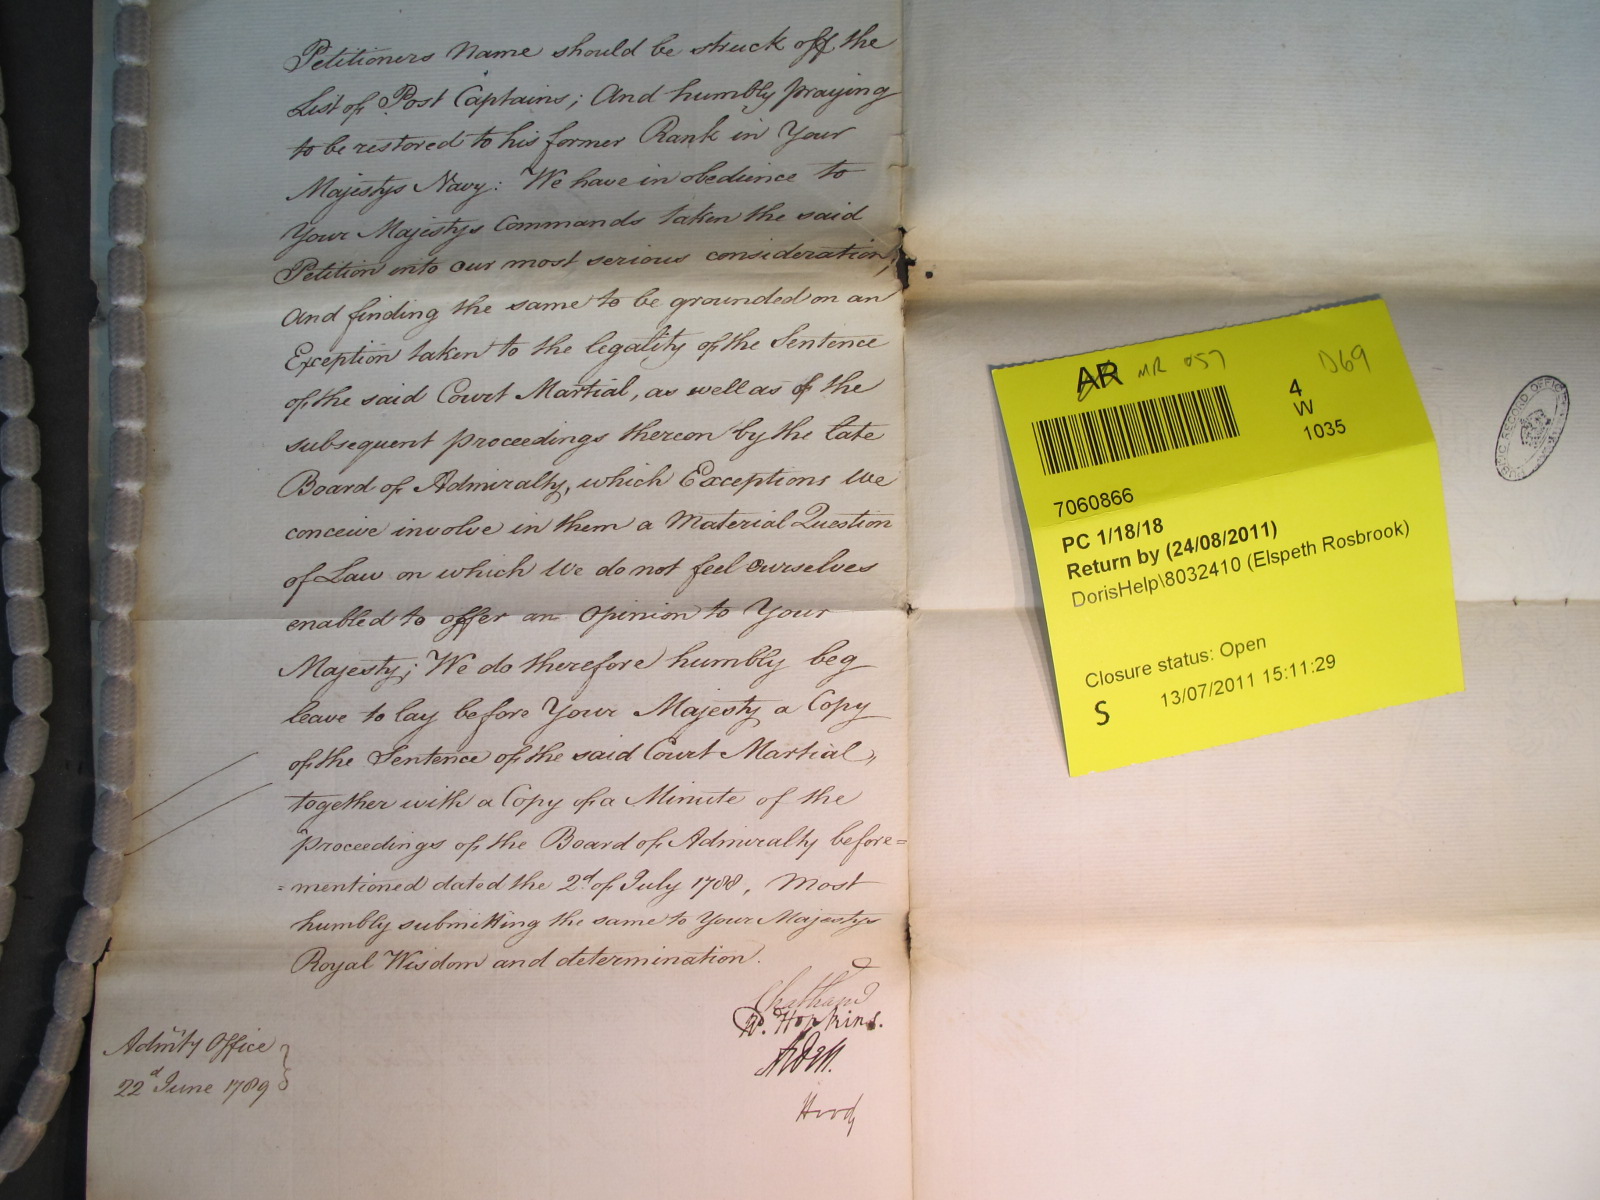 Petitioners Name should be struck off the
List of Post Captains; And humbly praying
to be restored to his former Rank in Your
Majestys Navy: We have in obedience to
Your Majestys Commands taken the said
Petition into our most serious consideration,
And finding the same to be grounded on an
Exception taken to the legality of the Sentence
of the said Court Martial, as well as of the
subsequent proceedings thereon by the late
Board of Admiralty, which Exceptions We
conceive involve in them a Material Question
of Law on which We do not feel Ourselves
enabled to offer an Opinion to Your
Majesty; We do therefore humbly beg
leave to lay before Your Majesty a Copy
of the Sentence of the said Court Martial,
together with a Copy of a Minute of the
proceedings of the Board of Admiralty before=
=mentioned dated the 2d of July 1788, Most
humbly submitting the same to Your Majestys
Royal Wisdom and determination.
Chatham
R. Hopkins.
Hood
Admty Office
22d June 1789
AR MR 057 D69
4
W
1035
7060866
PC 1/18/18
Return by (24/08/2011)
DorisHelp\8032410 (Elspeth Rosbrook)
Closure status: Open
S 13/07/2011 15:11:29
PUBLIC RECORD OFFICE